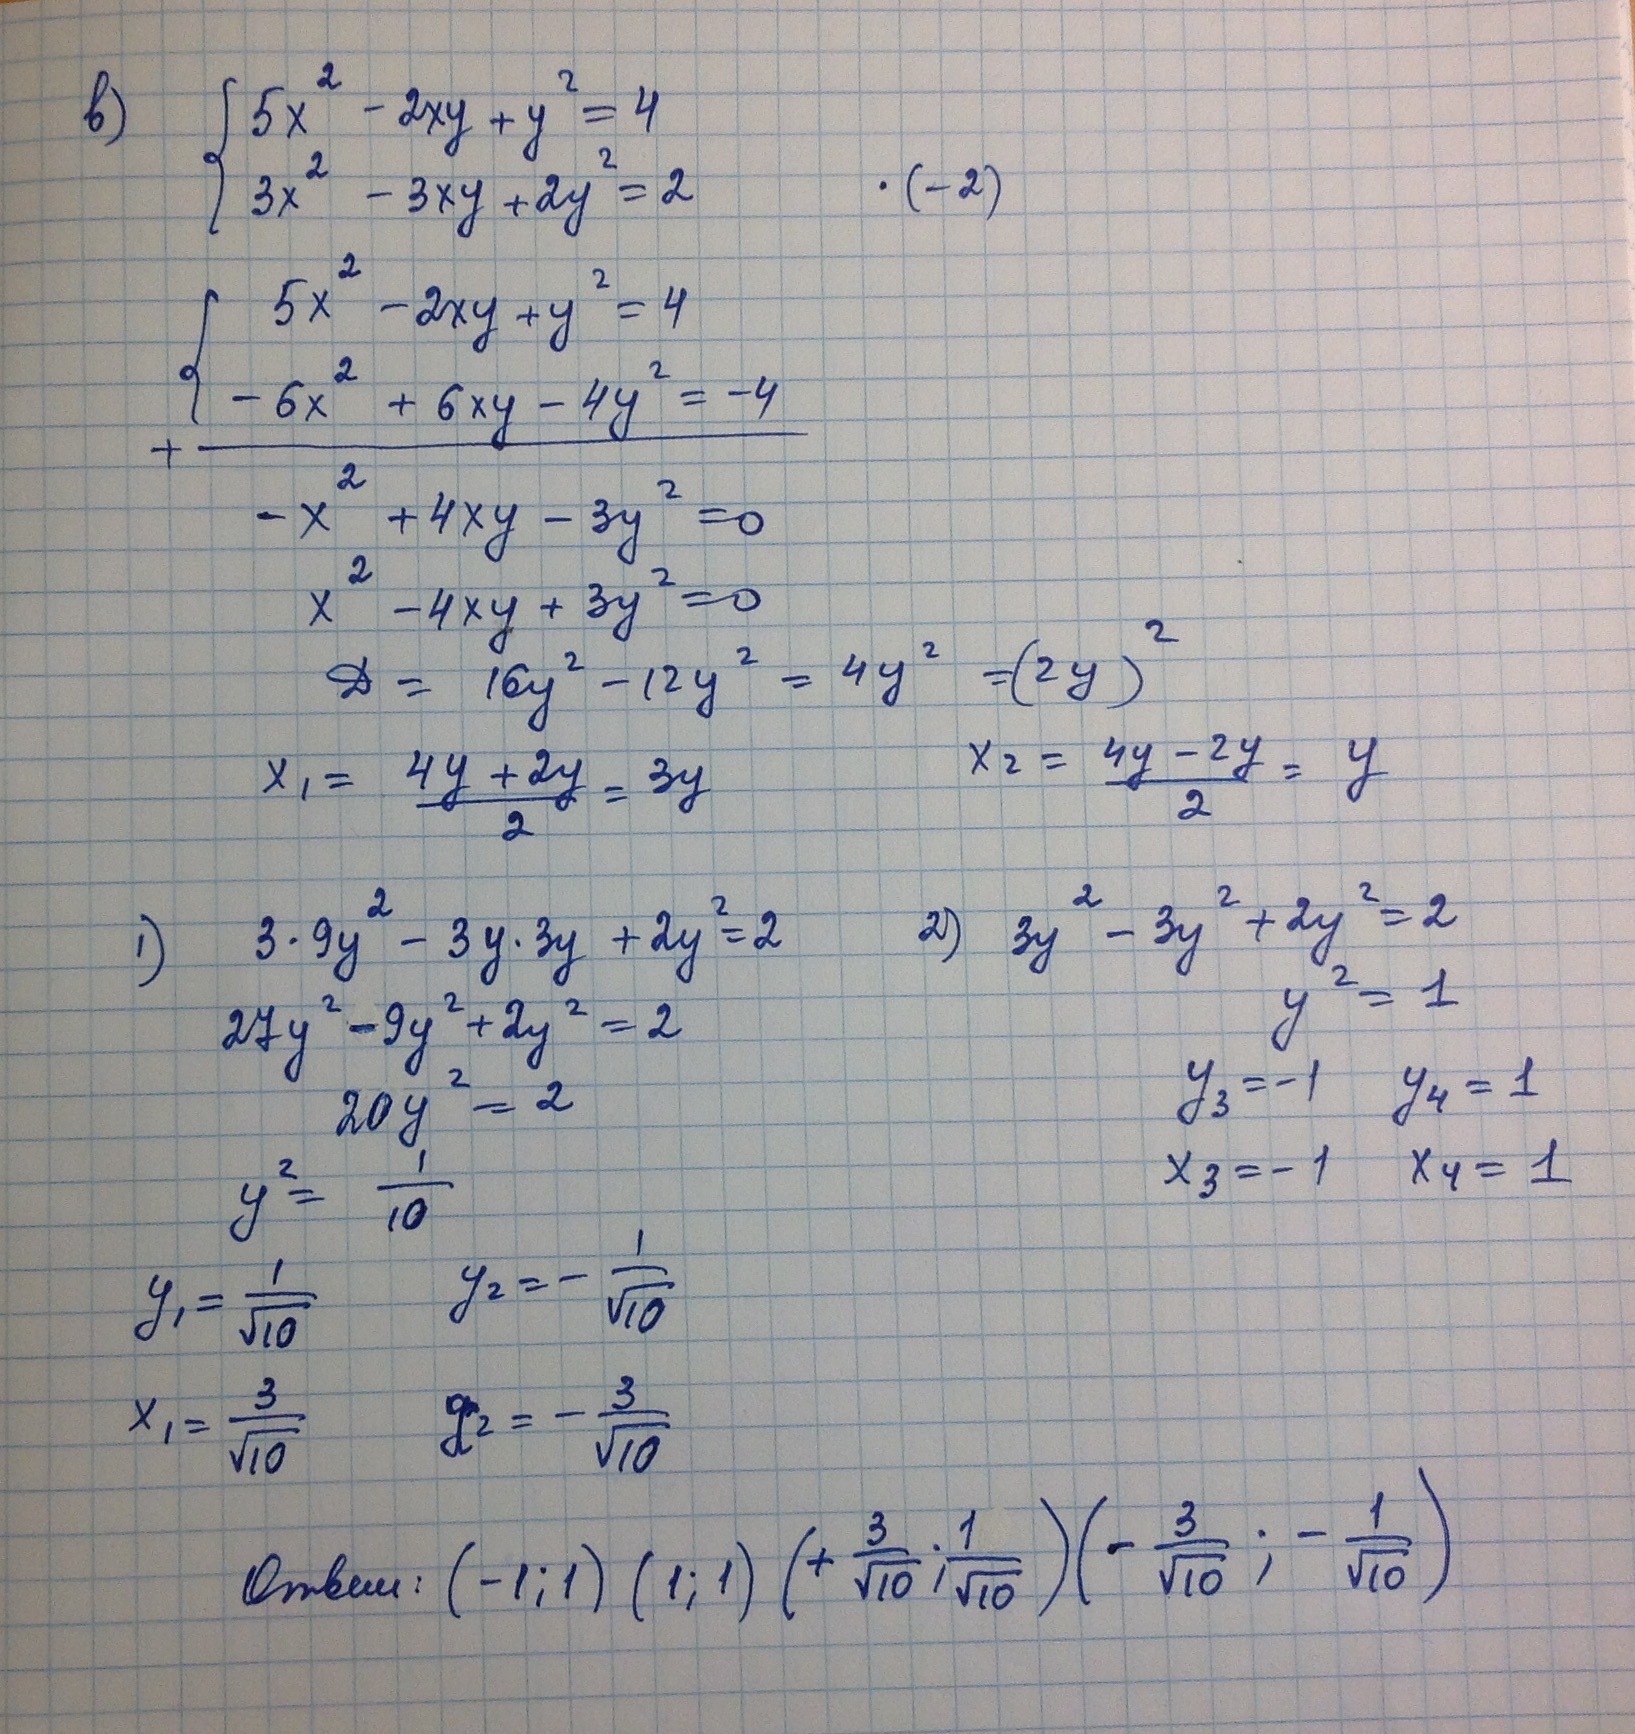 в) { 5x² - 2xy + y² = 4
3x² - 3xy + 2y² = 2 · (-2)
{ 5x² - 2xy + y² = 4
- 6x² + 6xy - 4y² = -4
+
- x² + 4xy - 3y² = 0
x² - 4xy + 3y² = 0
D = 16y² - 12y² = 4y² = (2y)²
x₁ = (4y + 2y)/2 = 3y x₂ = (4y - 2y)/2 = y
1) 3·9y² - 3y·3y + 2y² = 2 2) 3y² - 3y² + 2y² = 2
27y² - 9y² + 2y² = 2 y² = 1
20y² = 2 y₃ = -1 y₄ = 1
y² = 1/10 x₃ = -1 x₄ = 1
y₁ = 1/√10 y₂ = - 1/√10
x₁ = 3/√10 ₂ = - 3/√10
Ответ: (-1; 1) (1; 1) (+ 3/√10; 1/√10) (- 3/√10; - 1/√10)